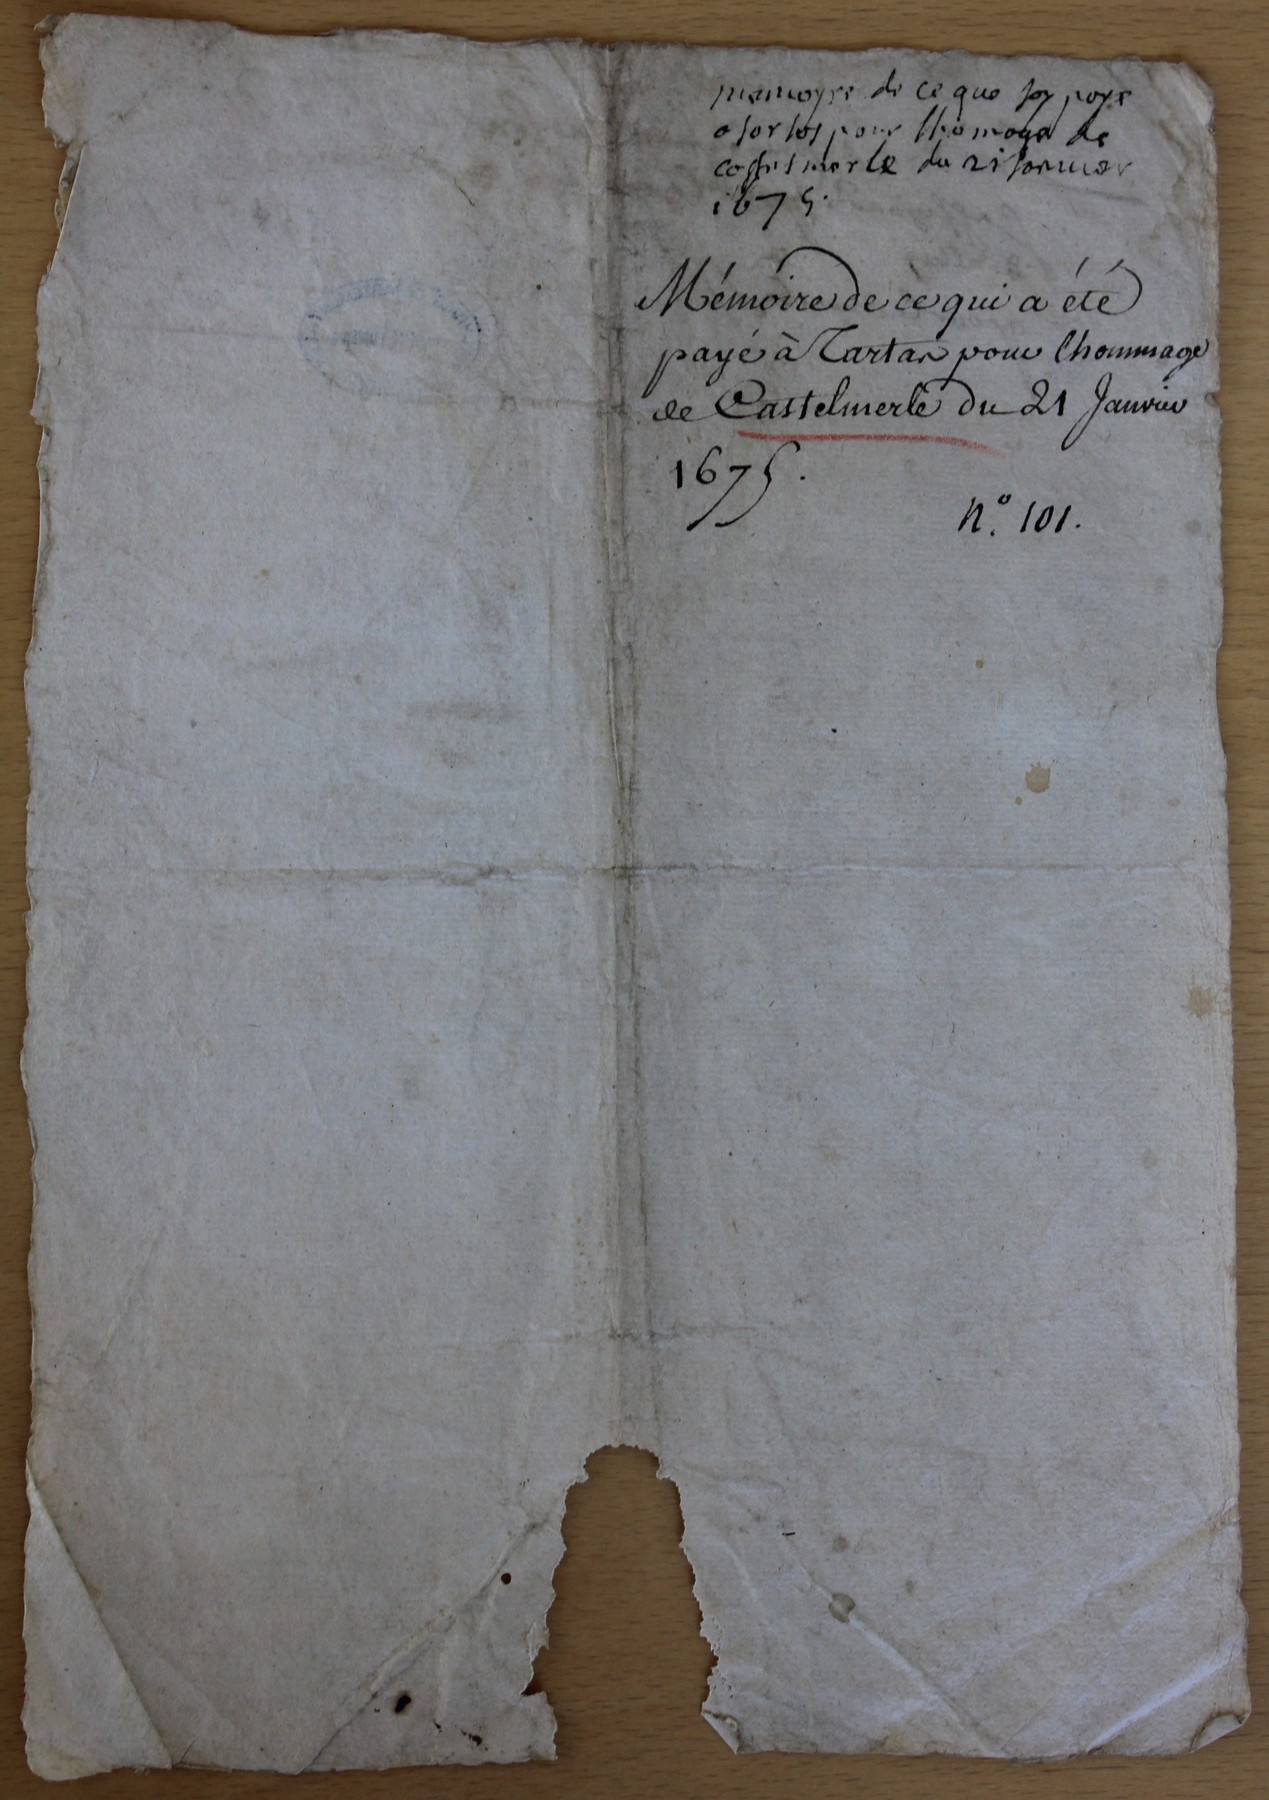 memoyre de ce que jay paye
a tartas pour lhomage de
castelmerle du 21 janvier
1675.
Mémoire de ce qui a été
payé à Tartas pour l'hommage
de Castelmerle du 21 Janvier
1675.
N.º 101.